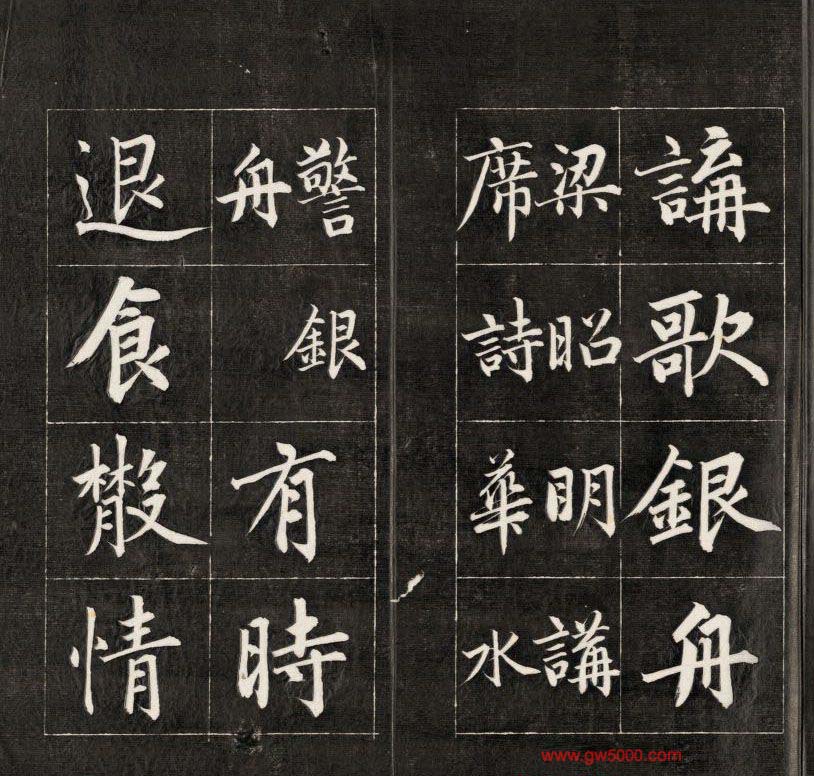 講歌銀舟
梁昭明講
席詩華水
警銀
舟
有時
退食㪚情
www.gw5000.com